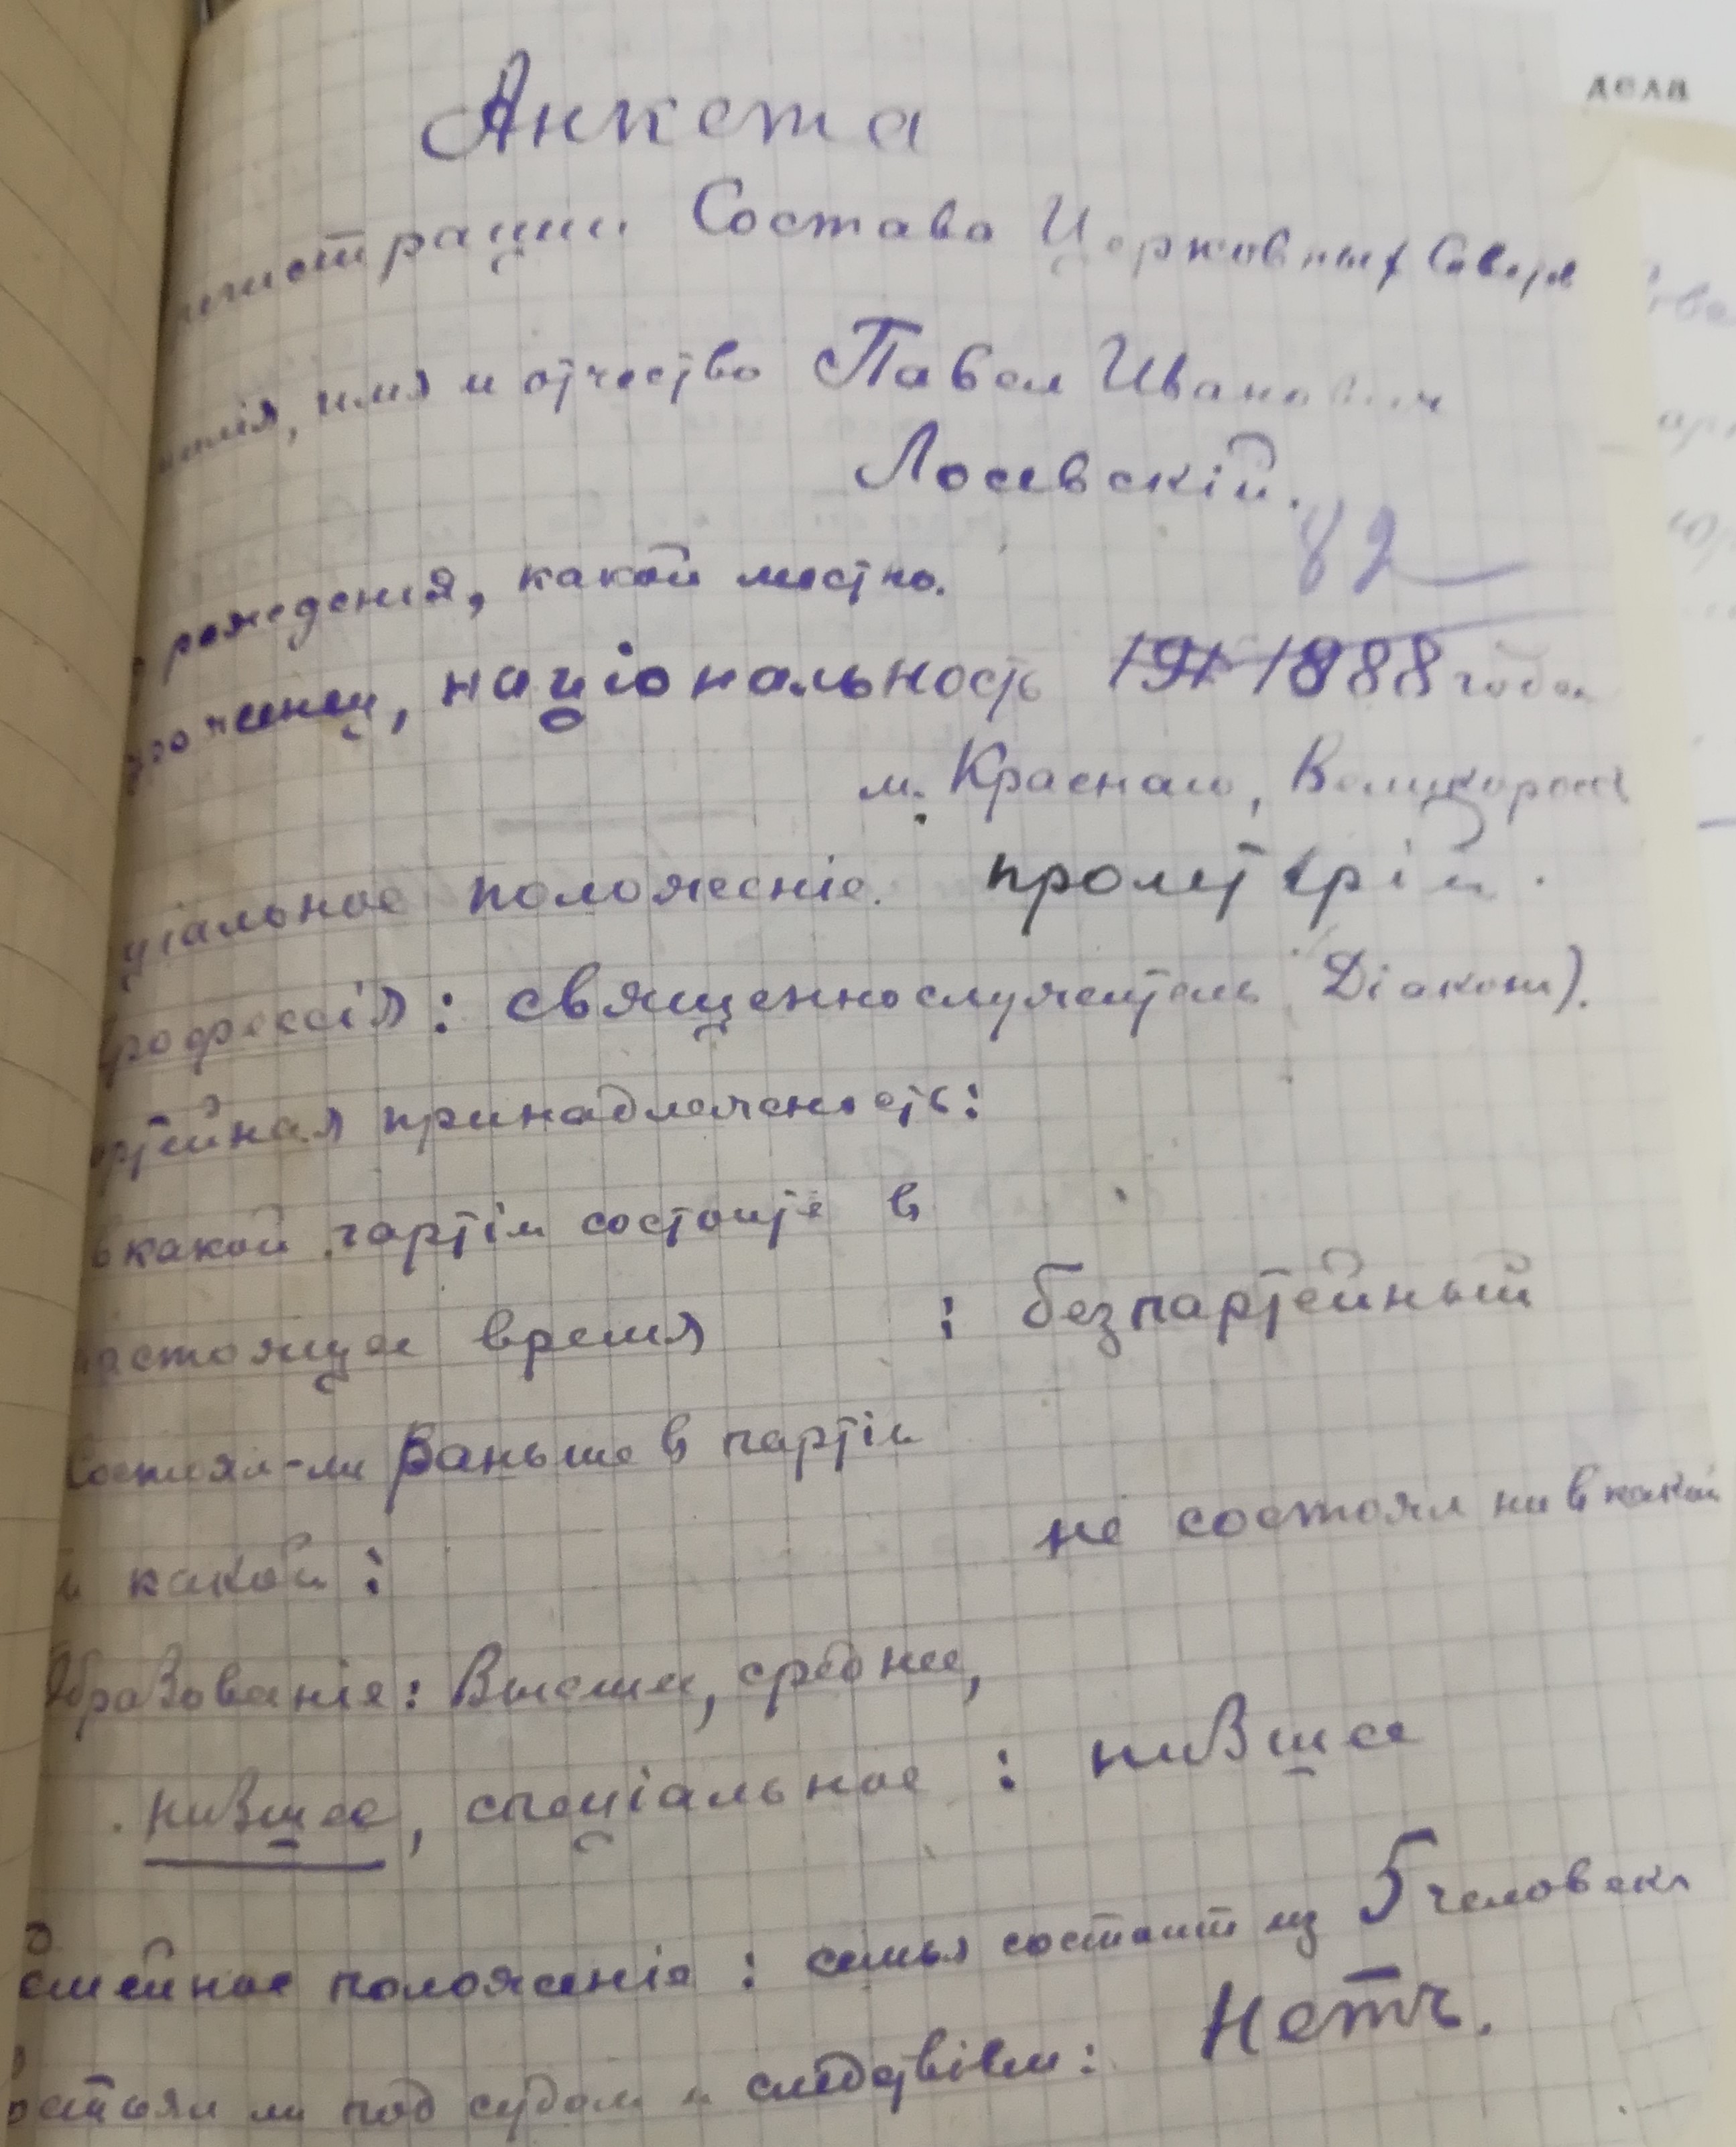 дела
Анкета
регистрации Состава Церковных
имя и отчество Павел Иванович
Лосевскій.
82
рождения, какой местно.
національность 191 1888 года
м. Красная, Великоросс
ціальное положеніе. пролетарій.
професія: священнослужитель Діакон).
артейная принадлежность:
в какой партіи состоите в
настоящее время : безпартейный
Состоял-ли раньше в партіи
не состоял ни в какой
и какой:
Образованіе: Высшее, среднее,
низшее, спеціальное : низшее
семейное положеніе : семья состоит из 5 человекъ
состоял ли под судом и следствіем: Нетъ.